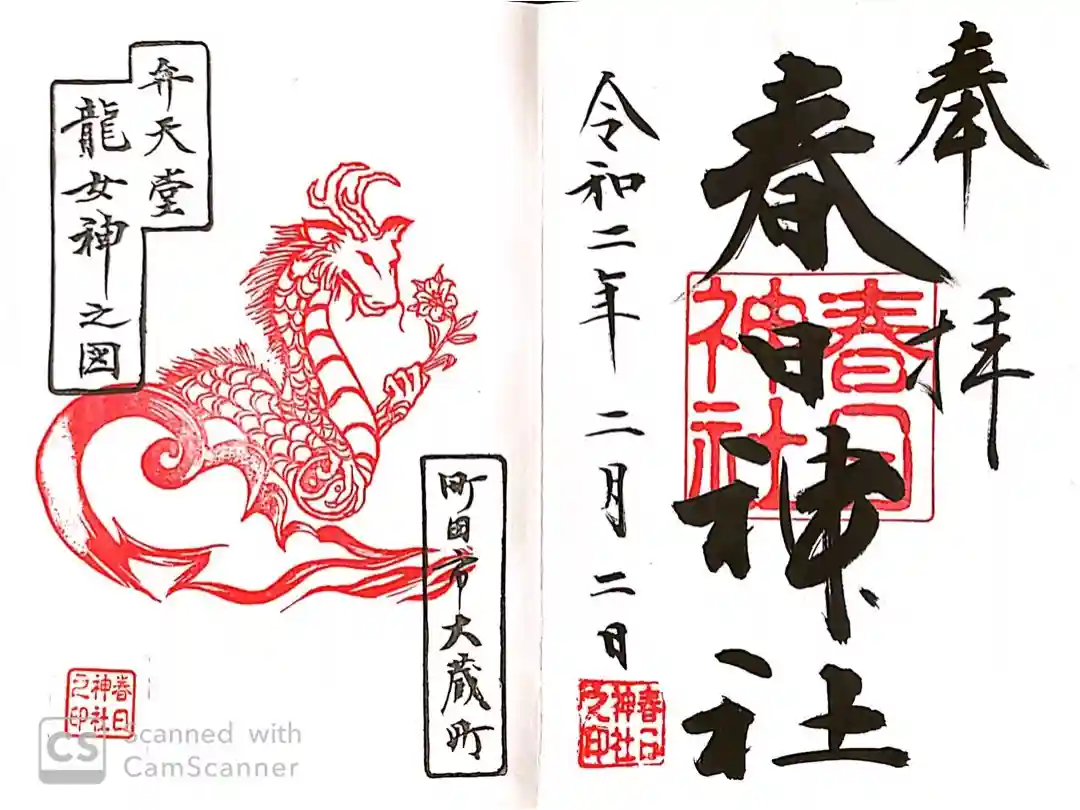 奉拝
春日神社
春日
神社
令和二年 二月 二日
春日
神社
之印
弁天堂
龍女神之図
町田市大蔵町
春日
神社
之印
CS
Scanned with
CamScanner